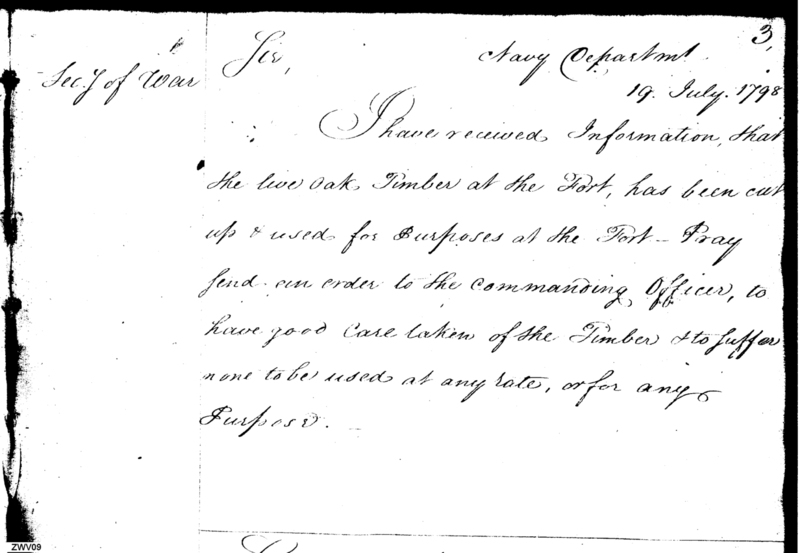 3,
Navy Departmt.
Secy of War
Sir,
19. July. 1798
I have received Information, that
the live oak Timber at the Fort, has been cut
up & used for Purposes at the Fort – Pray
send an order to the commanding Officer, to
have good Care taken of the Timber & to suffer
none to be used at any rate, or for any
Purpose.
ZWV09